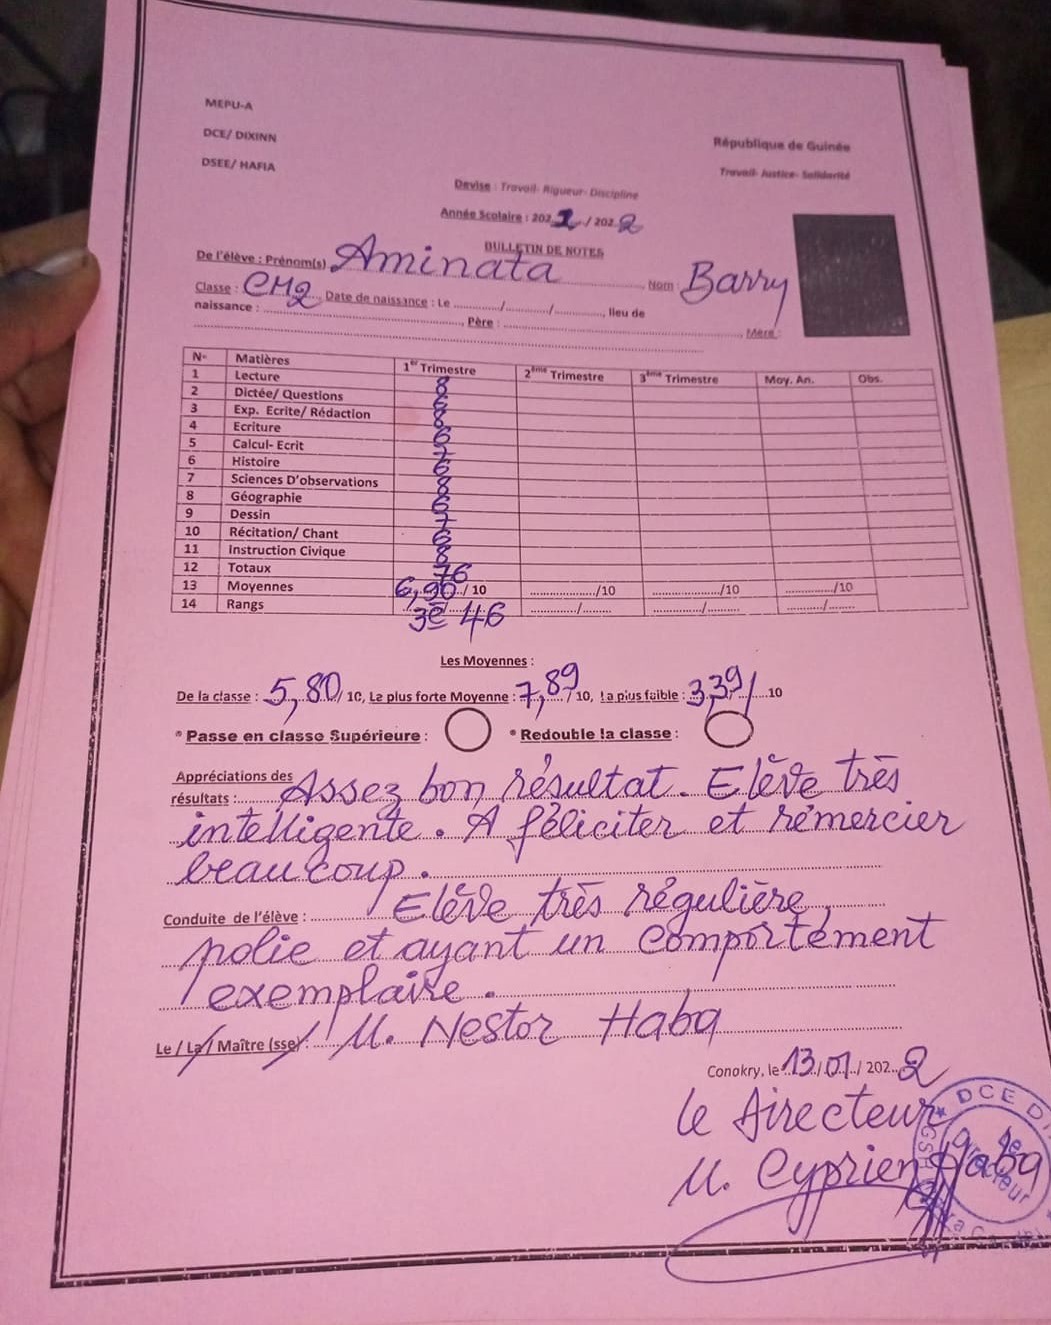 MEPU-A
DCE/ DIXINN
DSEE/ HAFIA
République de Guinée
Travail- Justice- Solidarité
Devise : Travail- Rigueur- Discipline
Année Scolaire : 2021/ 2022
BULLETIN DE NOTES
De l'élève : Prénom(s) Aminata Nom : Barry
Classe : CM2 Date de naissance : Le ............/............/............, lieu de
naissance : ................................, Père : ................................, Mère :
N° Matières 1er Trimestre 2ème Trimestre 3ème Trimestre Moy. An. Obs.
1 Lecture 8
2 Dictée/ Questions 6
3 Exp. Ecrite/ Rédaction 8
4 Ecriture 6
5 Calcul- Ecrit 7
6 Histoire 6
7 Sciences D'observations 8
8 Géographie 6
9 Dessin 7
10 Récitation/ Chant 6
11 Instruction Civique 8
12 Totaux 76
13 Moyennes 6,90/ 10 ............/10 ............/10 ............/10
14 Rangs 3e/46 ........./........ ........./........ ........./........
Les Moyennes :
De la classe : 5,80/ 10, La plus forte Moyenne : 7,89/ 10, la plus faible : 3,39/ 10
* Passe en classe Supérieure : * Redouble la classe :
Appréciations des
résultats : Assez bon résultat. Elève très
intelligente. A féliciter et rémercier
beaucoup.
Conduite de l'élève : Elève très régulière,
polie et ayant un comportement
exemplaire.
Le / La / Maître (sse) : M. Nestor Haba
Conokry, le 13/01/ 2022
Le Directeur
M. Cyprien Haba
DCE
Le Directeur